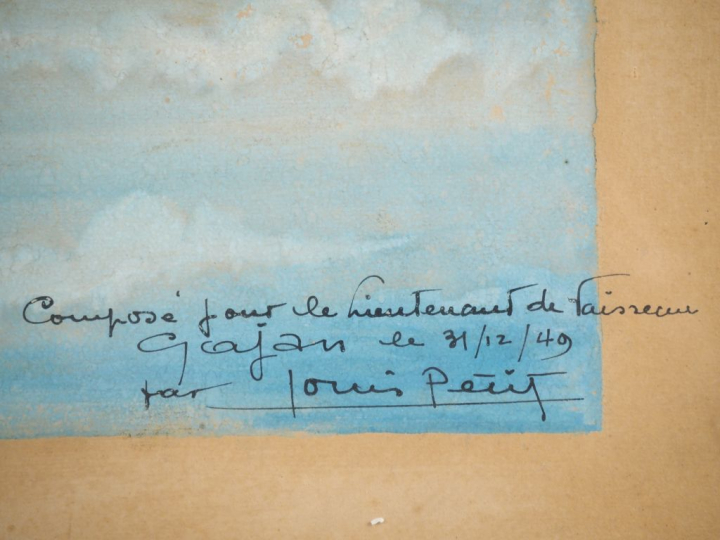 Composé pour le Lieutenant de Vaisseau
Gajan le 31/12/49
par Louis Petit